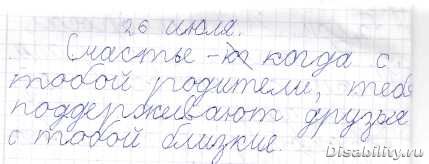 26 июля.
Счастье - когда с
тобой родители, тебя
поддерживают друзья
с тобой близкие.
Disability.ru